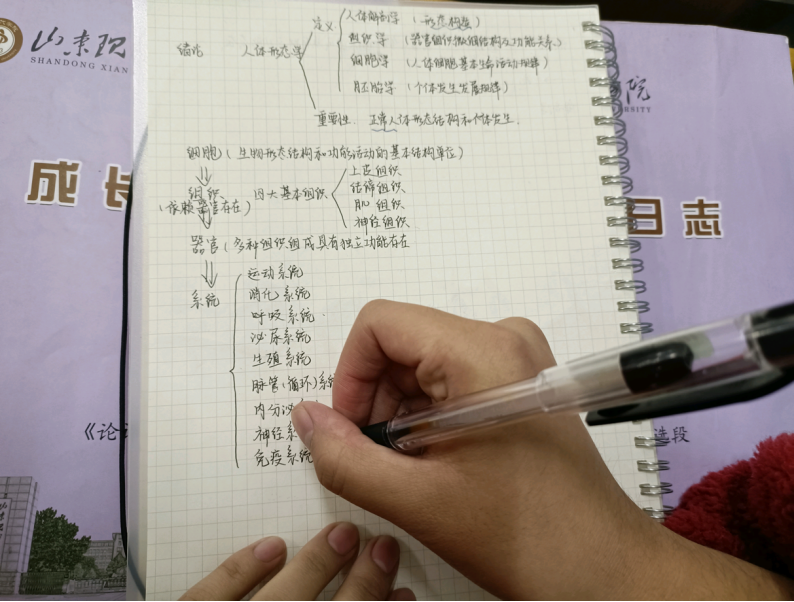 山东现
SHANDONG XIAN
院
ERSITY
成长
日志
《论
选段
绪论 人体形态学
定义
人体解剖学（形态构造）
组织学（器官组织微细结构及功能关系）
细胞学（人体细胞基本生命活动规律）
胚胎学（个体发生发展规律）
重要性 正常人体形态结构和个体发生.
细胞（生物形态结构和功能活动的基本结构单位）
组织 四大基本组织
（依赖器官存在）
上皮组织
结缔组织
肌组织
神经组织
器官（多种组织组成具有独立功能存在
系统
运动系统
消化系统
呼吸系统
泌尿系统
生殖系统
脉管（循环）系统
内分泌
神经系
免疫系统